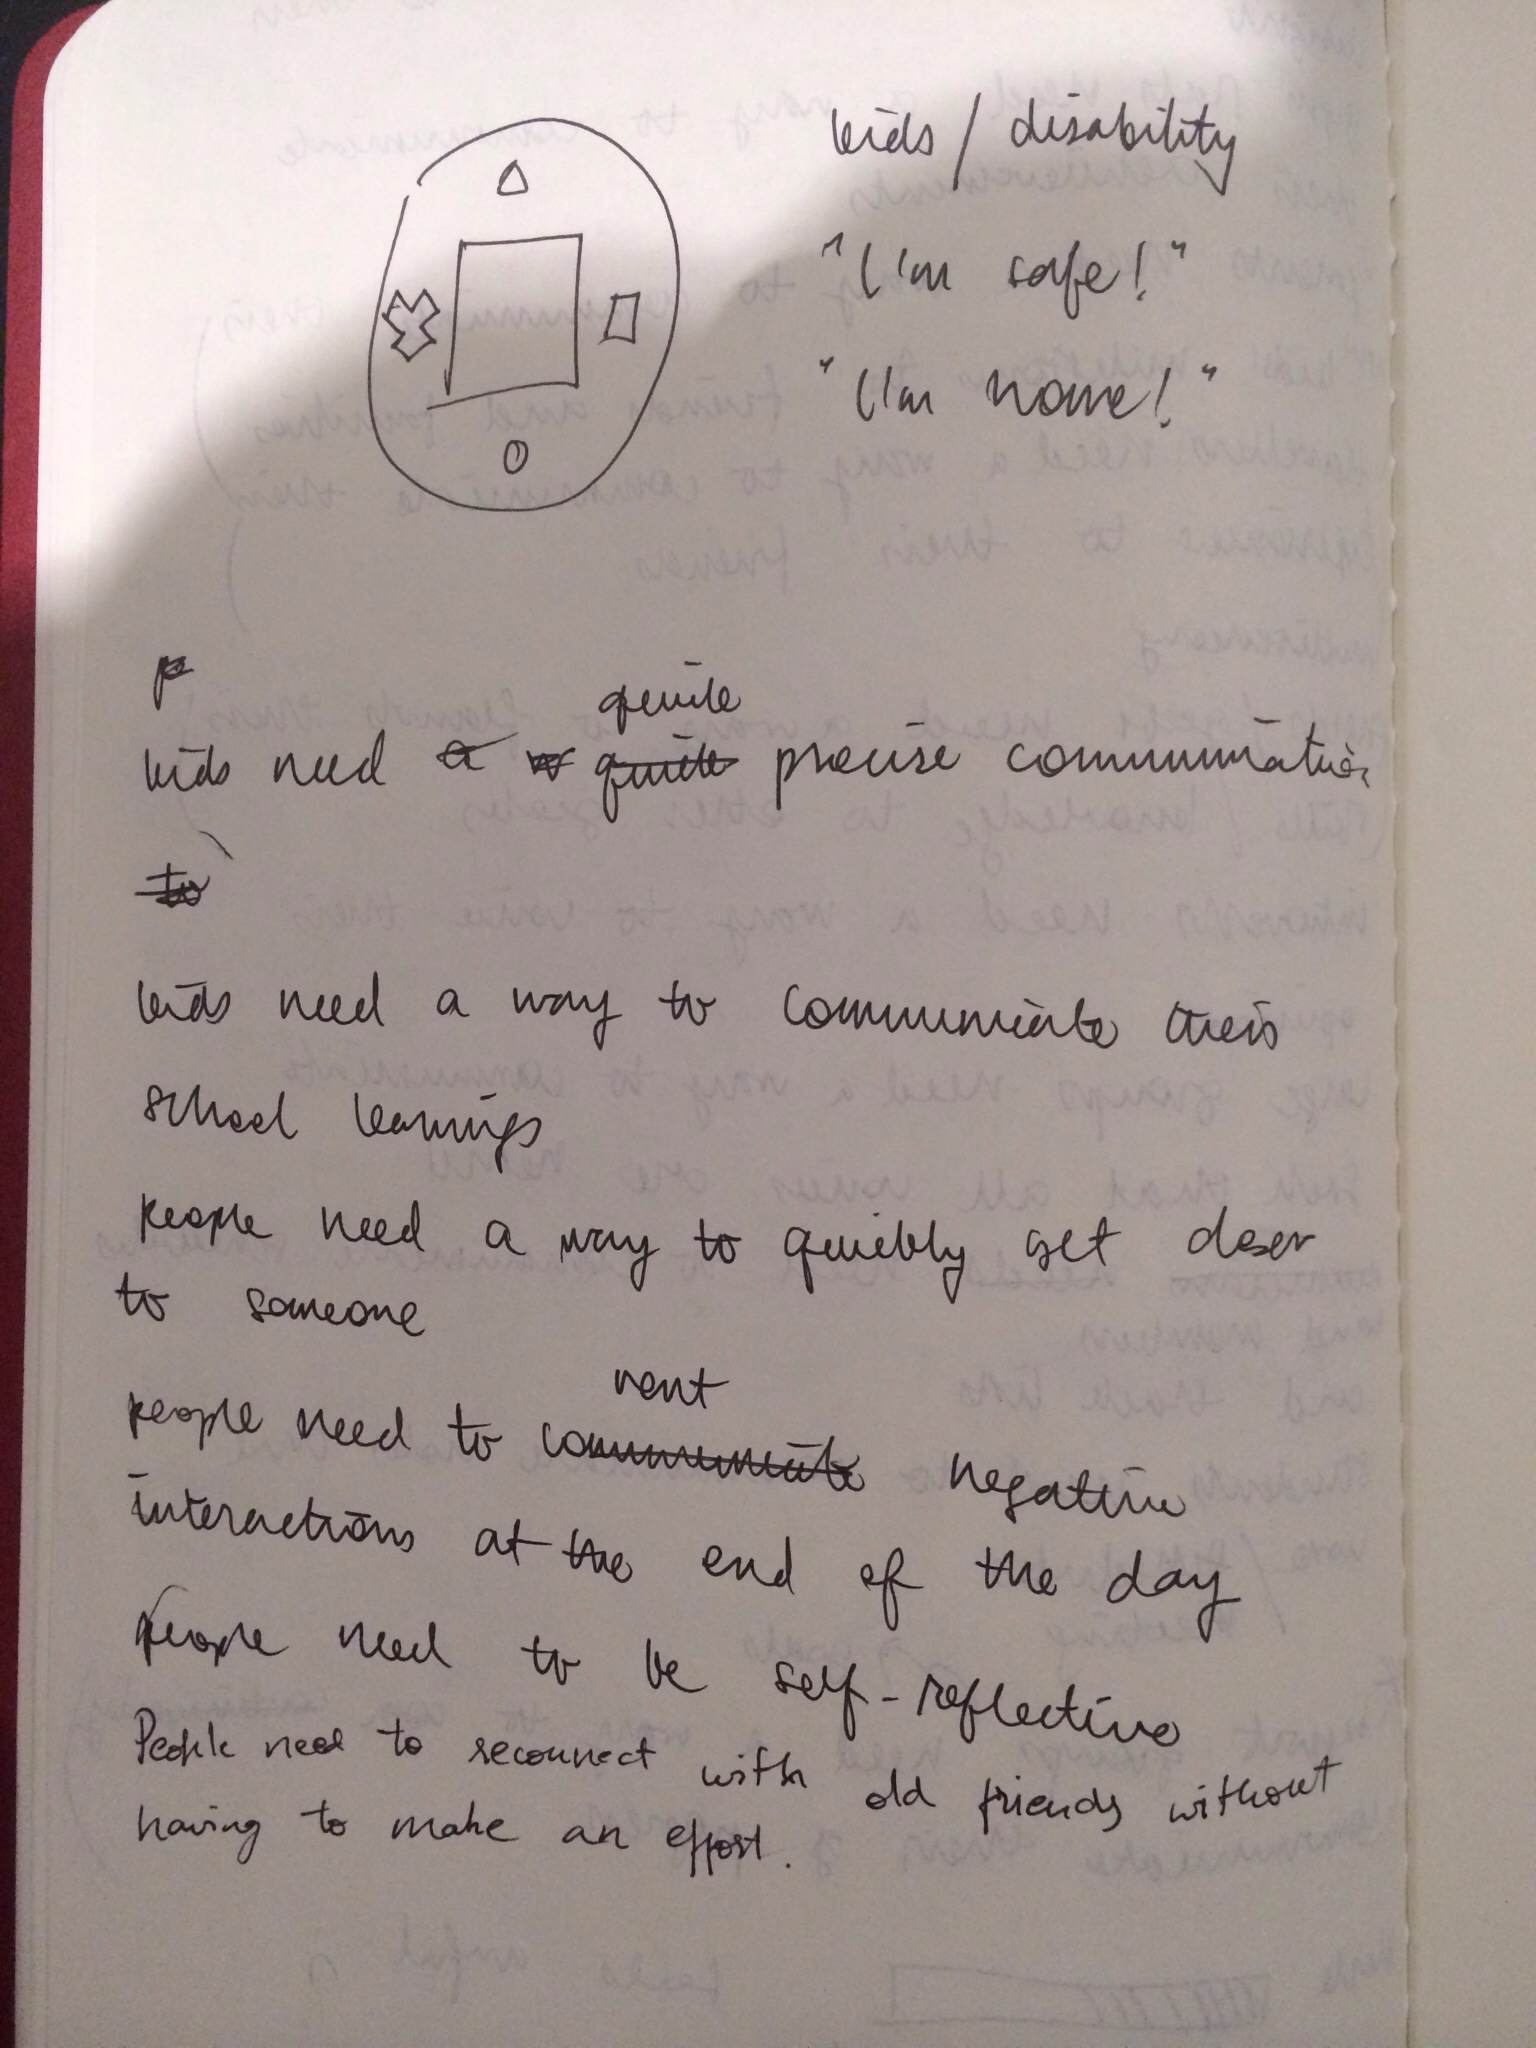 kids / disability
"I'm safe!"
"I'm home!"
quite
kids need a quite precise communication
to
kids need a way to communicate their
school learnings
people need a way to quickly get closer
to someone
vent
people need to communicate negative
interactions at the end of the day
people need to be self-reflective
People need to reconnect with old friends without
having to make an effort.